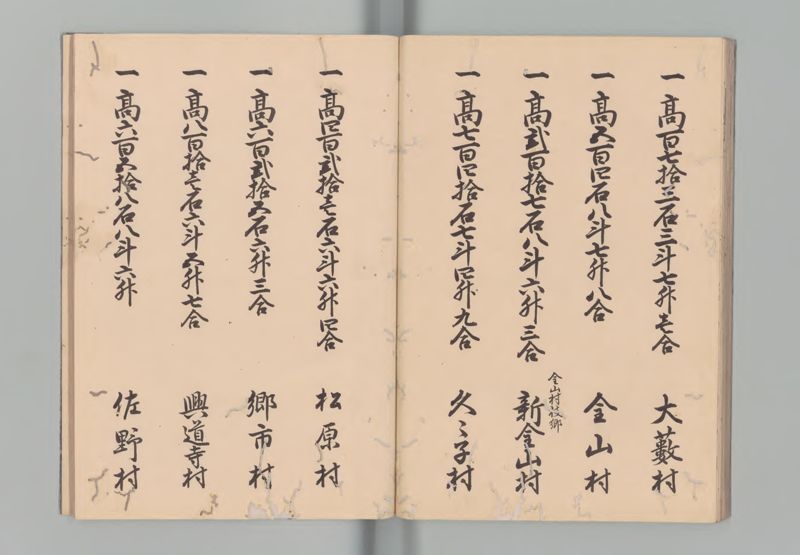 一高百七拾三石三斗七升壱合　大藪村
一高五百四石八斗七升八合　金山村
金山村枝郷
一高弐百拾七石八斗六升三合　新金山村
一高七百四拾石七斗四升九合　久々子村
一高四百弐拾壱石六斗六升四合　松原村
一高六百弐拾五石六升三合　郷市村
一高八百拾壱石六斗五升七合　興道寺村
一高六百五拾八石八斗六升　佐野村